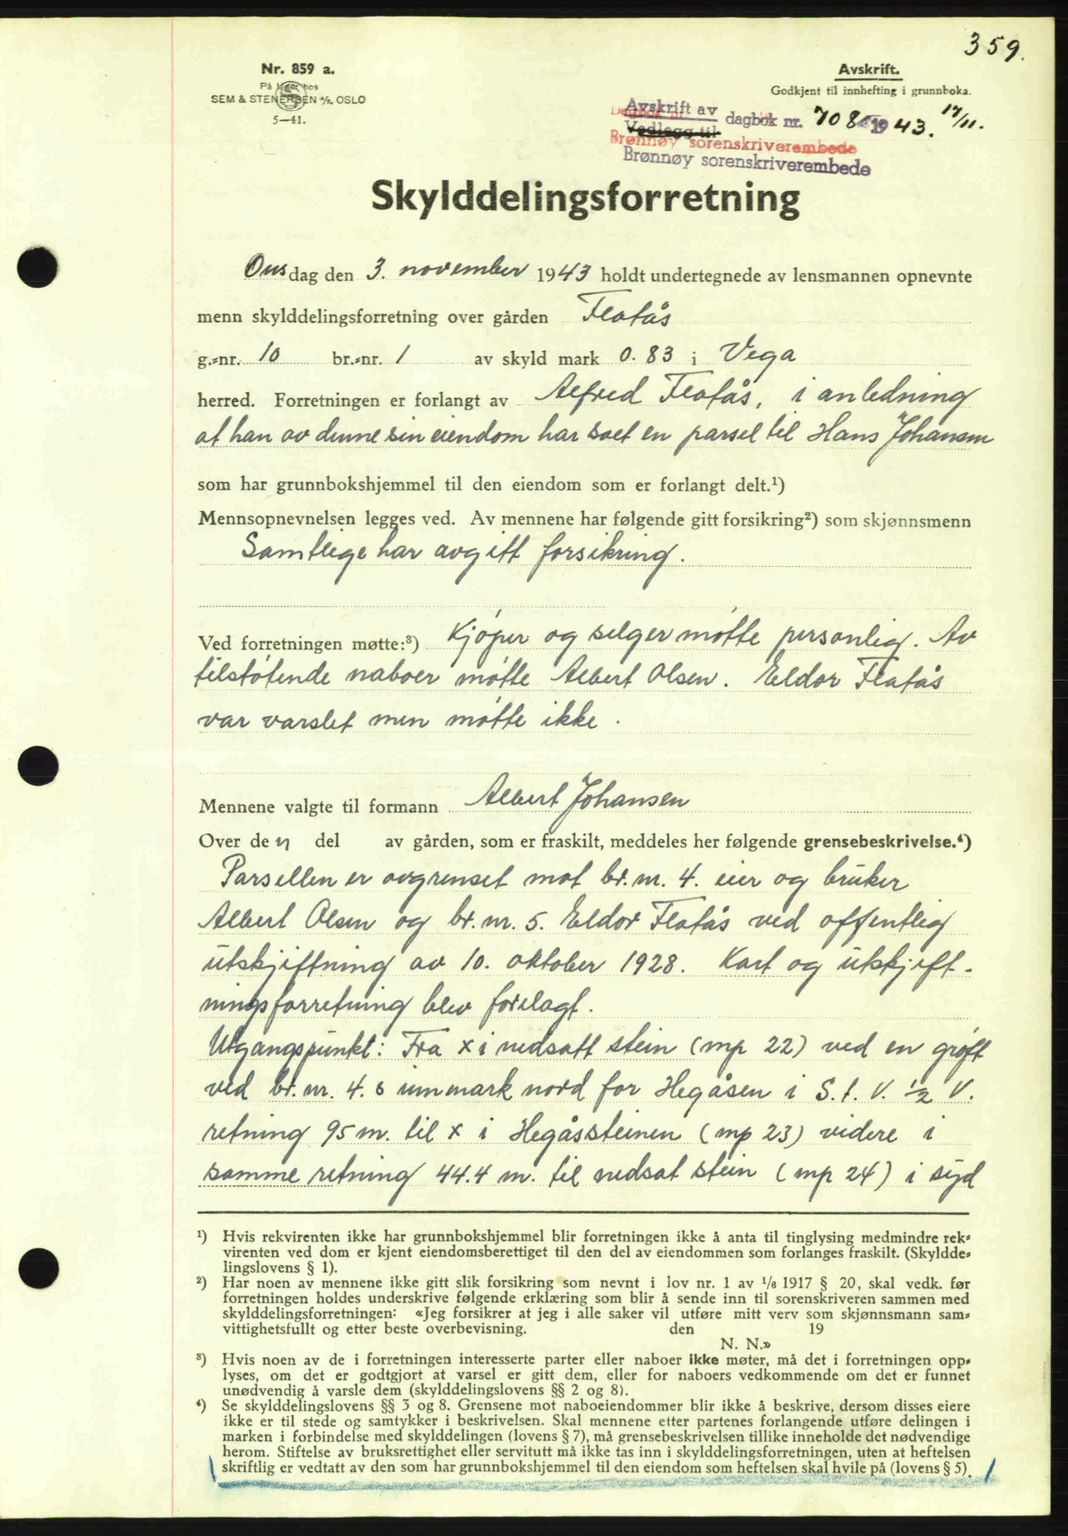 359.
Nr. 859 a.
På lager hos
SEM & STENERSEN A/S, OSLO
5—41.
Avskrift.
Godkjent til innhefting i grunnboka.
Avskrift av
Vedlegg til
dagbok nr. 708 1943. 17/11.
Brønnøy sorenskriverembede
Brønnøy sorenskriverembede
Skylddelingsforretning
Onsdag den 3. november 1943 holdt undertegnede av lensmannen opnevnte
menn skylddelingsforretning over gården Flatås
g.nr. 10 br.nr. 1 av skyld mark 0.83 i Vega
herred. Forretningen er forlangt av Alfred Flatås, i anledning
at han av denne sin eiendom har solt en parsel til Hans Johansen
som har grunnbokshjemmel til den eiendom som er forlangt delt.¹)
Mennsopnevnelsen legges ved. Av mennene har følgende gitt forsikring²) som skjønnsmenn
Samtlige har avgitt forsikring.
Ved forretningen møtte:³) Kjøper og selger møtte personlig. Av
tilstøtende naboer møtte Albert Olsen. Eldor Flatås
var varslet men møtte ikke.
Mennene valgte til formann Albert Johansen
Over den del av gården, som er fraskilt, meddeles her følgende grensebeskrivelse.⁴)
Parsellen er avgrenset mot br.nr. 4. eier og bruker
Albert Olsen og br.nr. 5. Eldor Flatås ved offentlig
utskjiftning av 10. oktober 1928. Kart og utskjift-
ningsforretning blev forelagt.
Utgangspunkt: Fra x i nedsatt stein (mp 22) ved en grøft
ved br.nr. 4.s innmark nord for Hegåsen i S.t.V. ½ V.
retning 95 m. til x i Hegåssteinen (mp 23) videre i
samme retning 44.4 m. til nedsat stein (mp 24) i syd
¹) Hvis rekvirenten ikke har grunnbokshjemmel blir forretningen ikke å anta til tinglysing medmindre rek-
virenten ved dom er kjent eiendomsberettiget til den del av eiendommen som forlanges fraskilt. (Skyldde-
lingslovens § 1).
²) Har noen av mennene ikke gitt slik forsikring som nevnt i lov nr. 1 av 1/6 1917 § 20, skal vedk. før
forretningen holdes underskrive følgende erklæring som blir å sende inn til sorenskriveren sammen med
skylddelingsforretningen: «Jeg forsikrer at jeg i alle saker vil utføre mitt verv som skjønnsmann sam-
vittighetsfullt og etter beste overbevisning. den 19
N. N.»
³) Hvis noen av de i forretningen interesserte parter eller naboer ikke møter, må det i forretningen opp-
lyses, om det er godtgjort at varsel er gitt dem, eller for naboers vedkommende om det er funnet
unødvendig å varsle dem (skylddelingslovens §§ 2 og 8).
⁴) Se skylddelingslovens §§ 3 og 8. Grensene mot naboeiendommer blir ikke å beskrive, dersom disses eiere
ikke er til stede og samtykker i beskrivelsen. Skal mennene etter partenes forlangende utføre delingen i
marken i forbindelse med skylddelingen (lovens § 7), må grensebeskrivelsen tillike inneholde det nødvendige
herom. Stiftelse av bruksrettighet eller servitutt må ikke tas inn i skylddelingsforretningen, uten at heftelsen
skriftlig er vedtatt av den som har grunnbokshjemmel til den eiendom som heftelsen skal hvile på (lovens § 5).